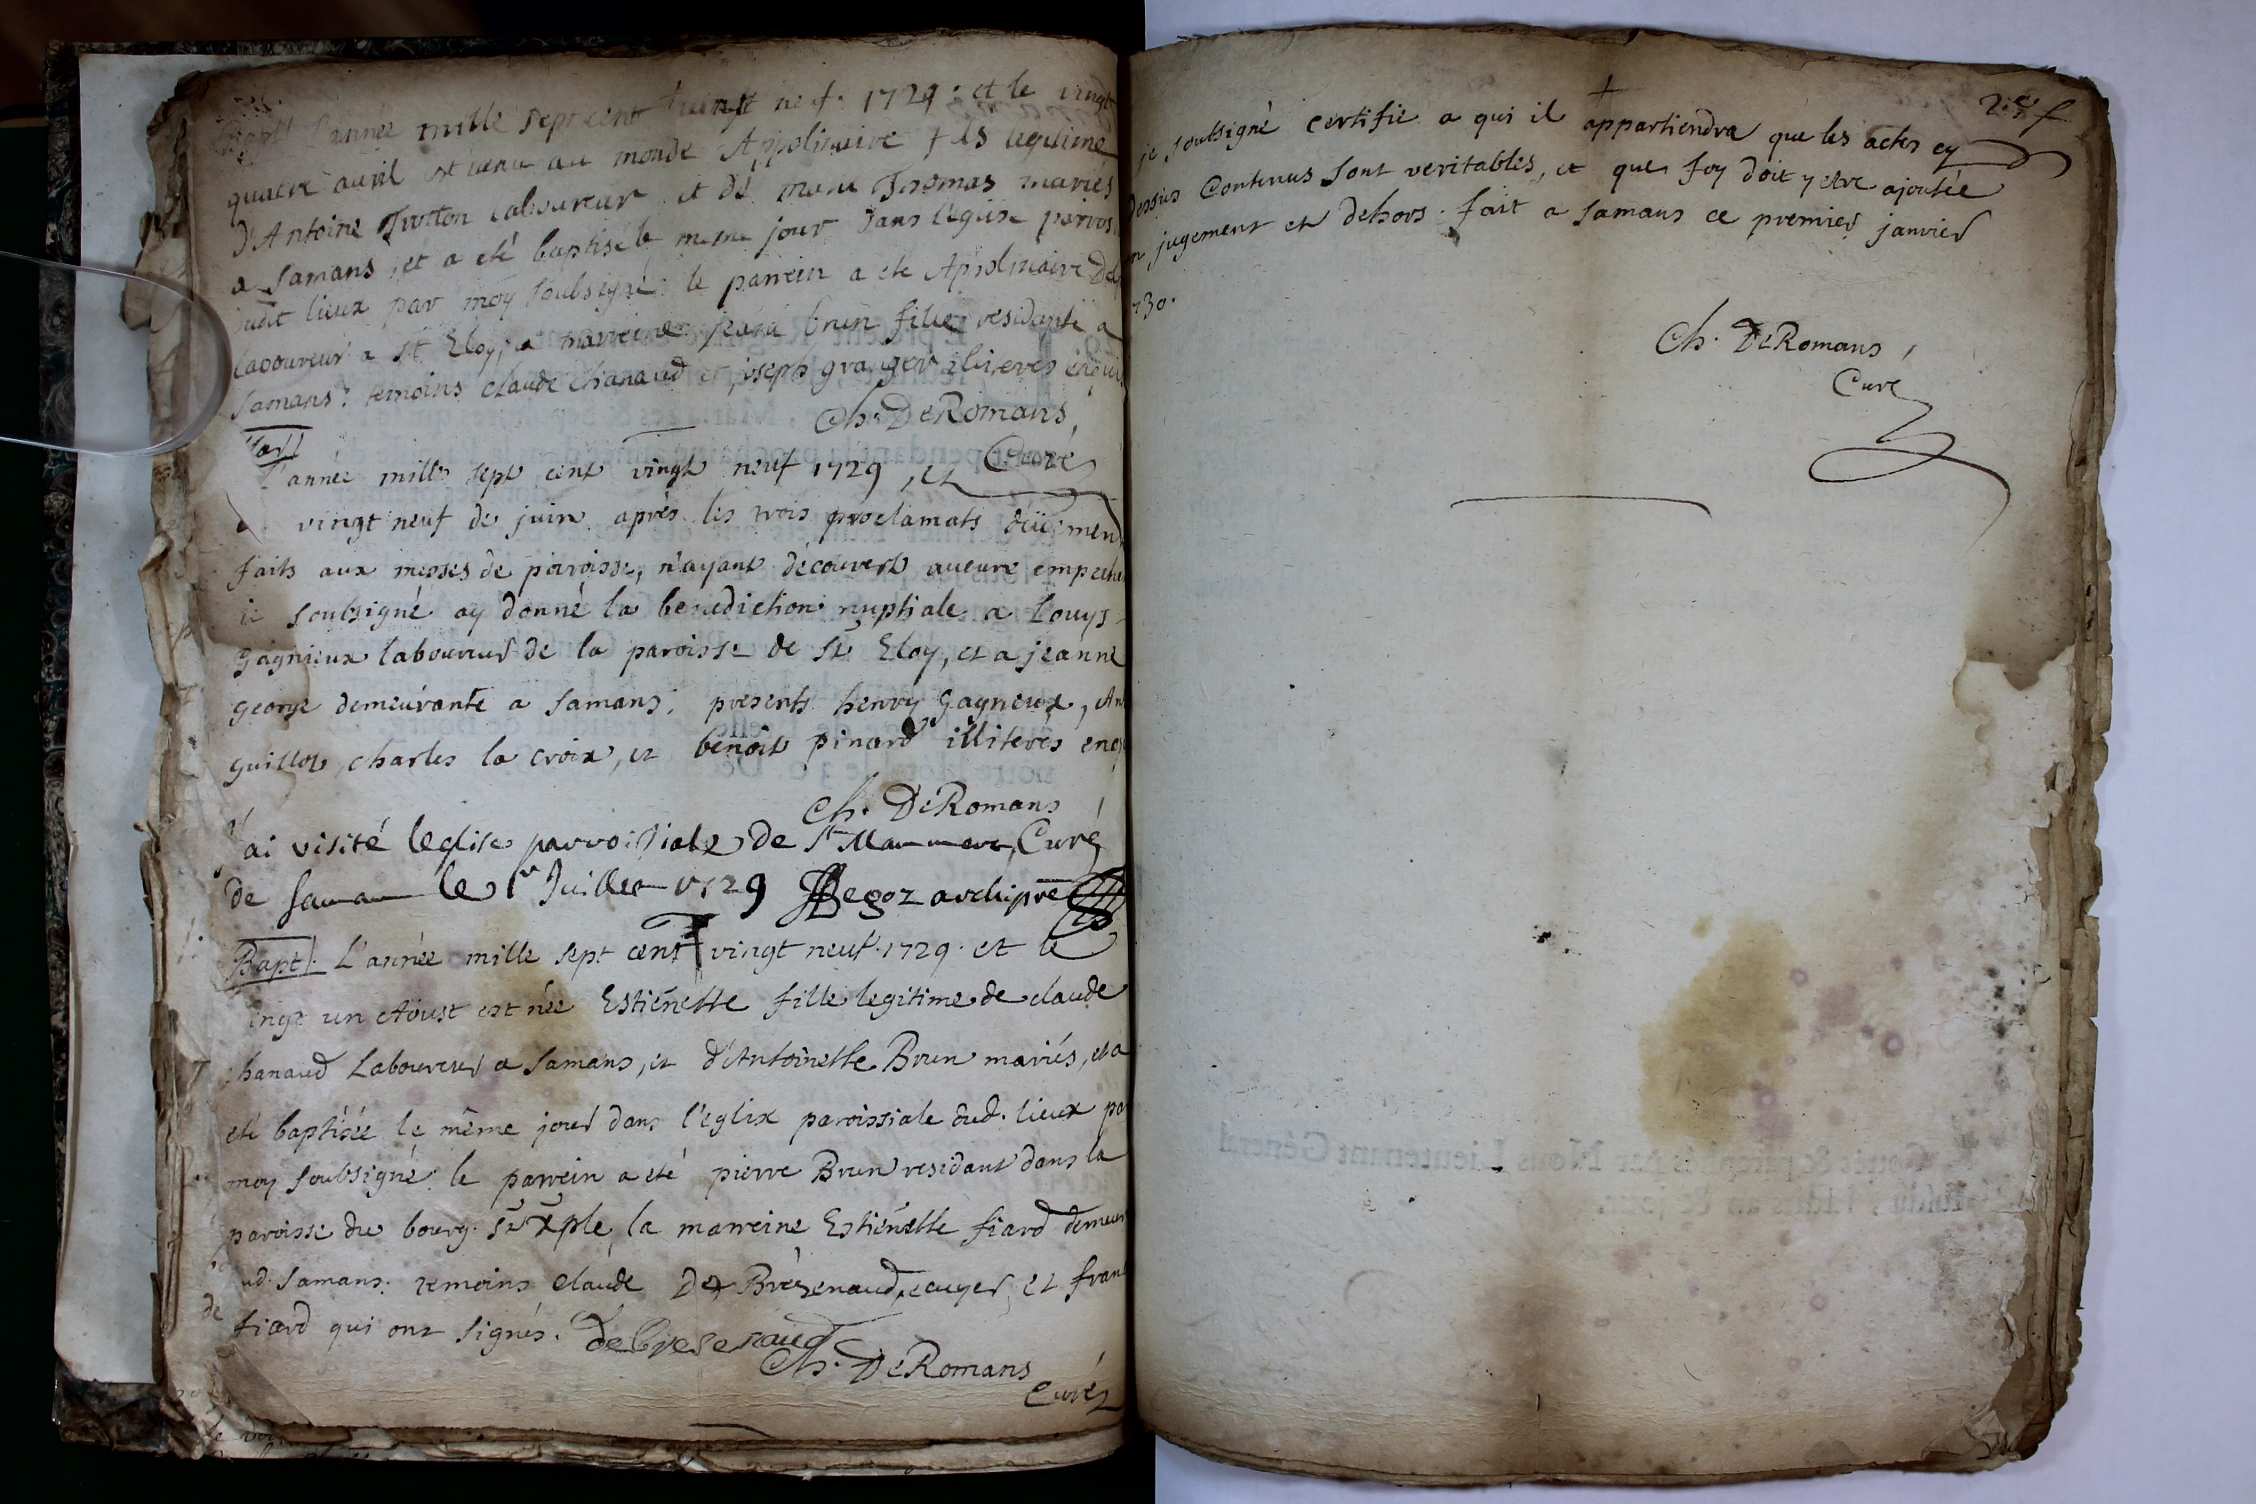 Bapt. l'année mille sept cent vingt neuf. 1729. et le vingt
quatre avril est venu au monde Appolinaire fils legitime
d'Antoine Trotton laboureur et de marie Thomas mariés
a Samans, et a eté baptisé le meme jour dans l'eglise parois
dudit lieux par moy soubsigné: le parrein a ete Appolinaire
laboureur a St Eloy, a marreine brun fille residante a
Samans. temoins claude chanaud et joseph granger illiteres enquis
Ch. DeRomans,
Curé
Mar.
l'année mille sept cent vingt neuf 1729, et
vingt neuf de juin après les trois proclamats düement
faits aux messes de paroisse, n'ayant découvert aucune empeche
je soubsigné ay donné la benediction nuptiale a Louys
gagnieux laboureur de la paroisse de St Eloy, et a jeanne
george demeurante a Samans. presents henry gagneux, An
guillot, charles la croix, et benoit pinard illiterés enq
Ch. DeRomans,
Curé
J'ai visité leglise parroissiale de St Mammere
de Samans le 1r Juillet 1729 Begoz archiprê
Bapt. L'année mille sept cent vingt neuf. 1729. et le
vingt un Aoust est née Estiénette fille legitime de claude
chanaud Laboureur a Samans, et d'Antoinette Brun mariés, et a
eté baptisée le même jour dans l'eglise paroissiale dud. lieux pa
moy soubsigné: le parrein a eté pierre Brun residant dans la
paroisse du bourg St Xple, la marreine Estiénette fiard demeur
ud. Samans. temoins claude De Brézenaud, ecuyer, et fran
fiard qui ont signés. de bresenaud
Ch. DeRomans
Curé
2.e f
je soubsigné certifie a qui il appartiendra que les actes cy
dessus Contenus sont veritables, et que foy doit y etre ajoutée
en jugement et dehors. fait a Samans ce premier janvier
1730.
Ch. DeRomans,
Curé